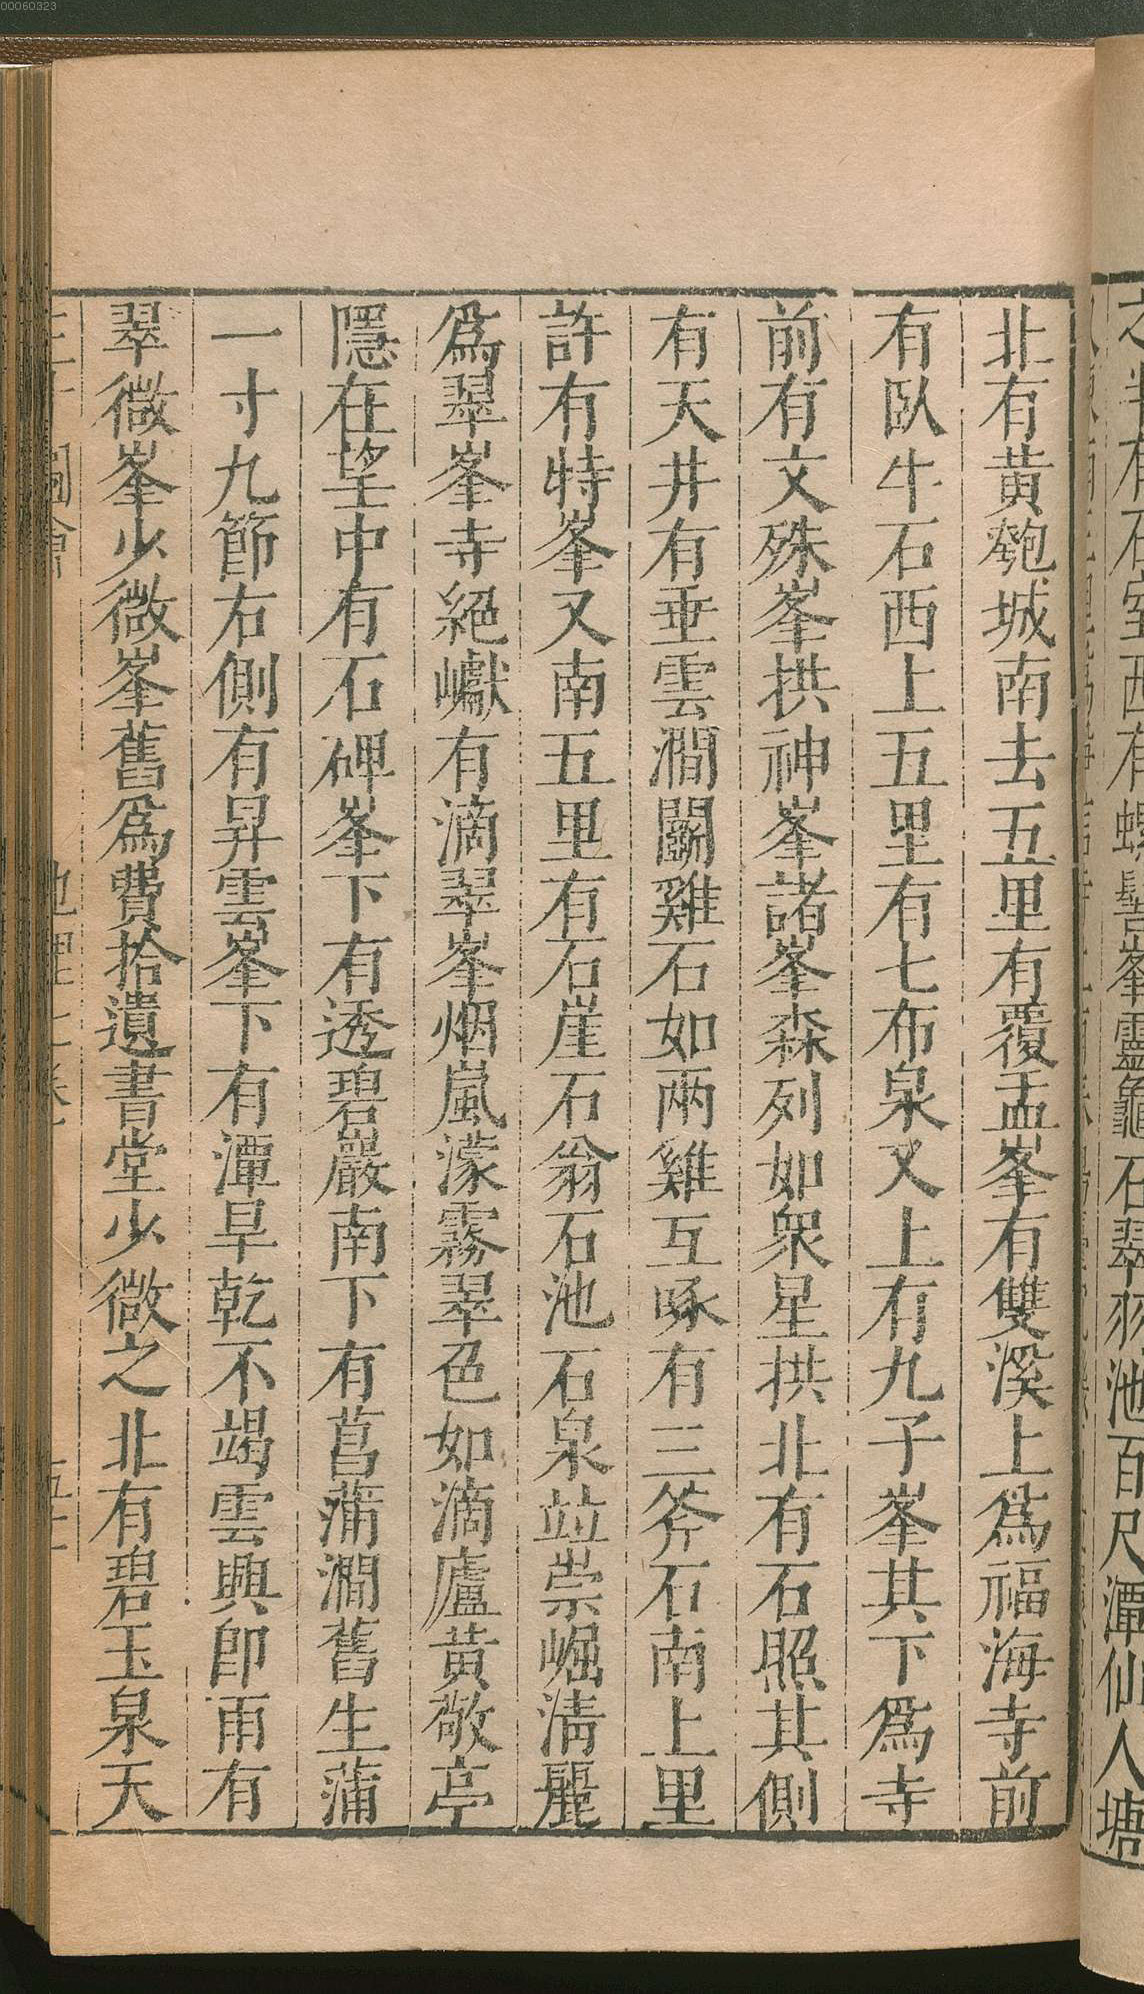 00060323
有石室西有螺髻峯靈龜石翠羽池百尺潭仙人塘
北有黄匏城南去五里有覆盂峯有雙溪上爲福海寺前
有臥牛石西上五里有七布泉又上有九子峯其下爲寺
前有文殊峯拱神峯諸峯森列如衆星拱北有石照其側
有天井有垂雲澗鬭雞石如兩雞互啄有三斧石南上里
許有特峯又南五里有石崖石翁石池石泉竝崇崛淸麗
爲翠峯寺絕巘有滴翠峯烟嵐濛霧翠色如滴廬黄敬亭
隱在望中有石碑峯下有透碧巖南下有菖蒲澗舊生蒲
一寸九節右側有昇雲峯下有潭旱乾不竭雲興卽雨有
翠微峯少微峯舊爲費拾遺書堂少微之北有碧玉泉天